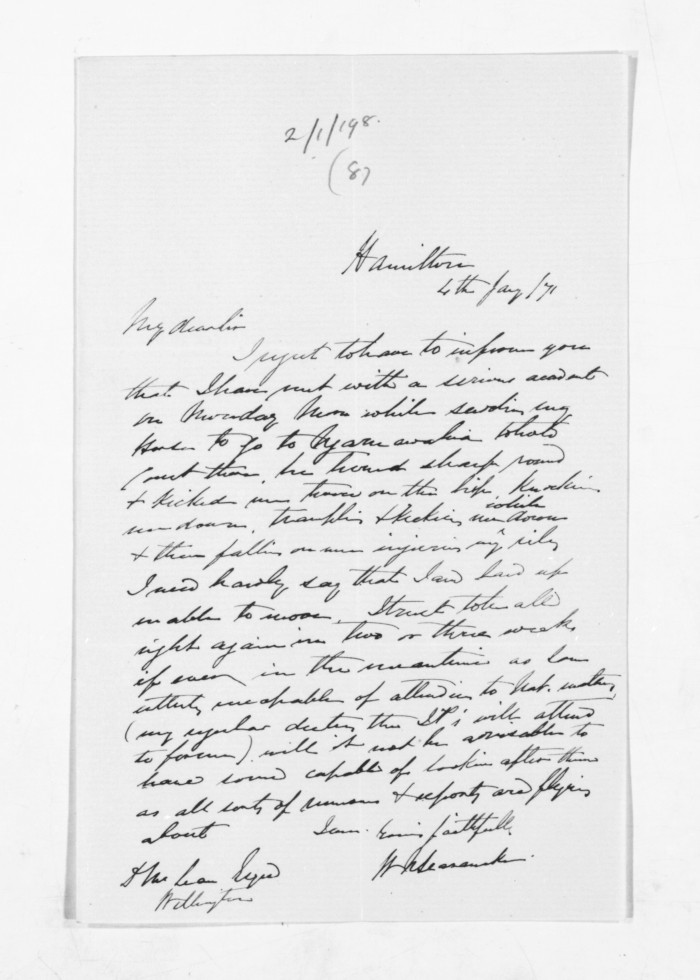 2/1/198.
(87
Hamilton
4th Jany /71
My dear Sir
I regret to have to inform you
that I have met with a serious accident
on Monday Noon while sending my
Horse to go to Ngaruawahia to hold
Court there, he turned sharp round
& kicked me twice on the hip, Knocking
me down, trampling & kicking me while down
& then falling on me injuring my side,
I need hardly say that I am laid up
unable to move, I trust to be all
right again in two or three weeks
if ever, in the meantime as I am
utterly incapable of attending to Nat. matters,
(my regular duties the JP's will attend
to for me) will it not be advisable to
have some capable of looking after them
as all sorts of rumours & reports are flying
about
I am. Yours faithfully,
W N Searancke.
D McLean Esqre
Wellington